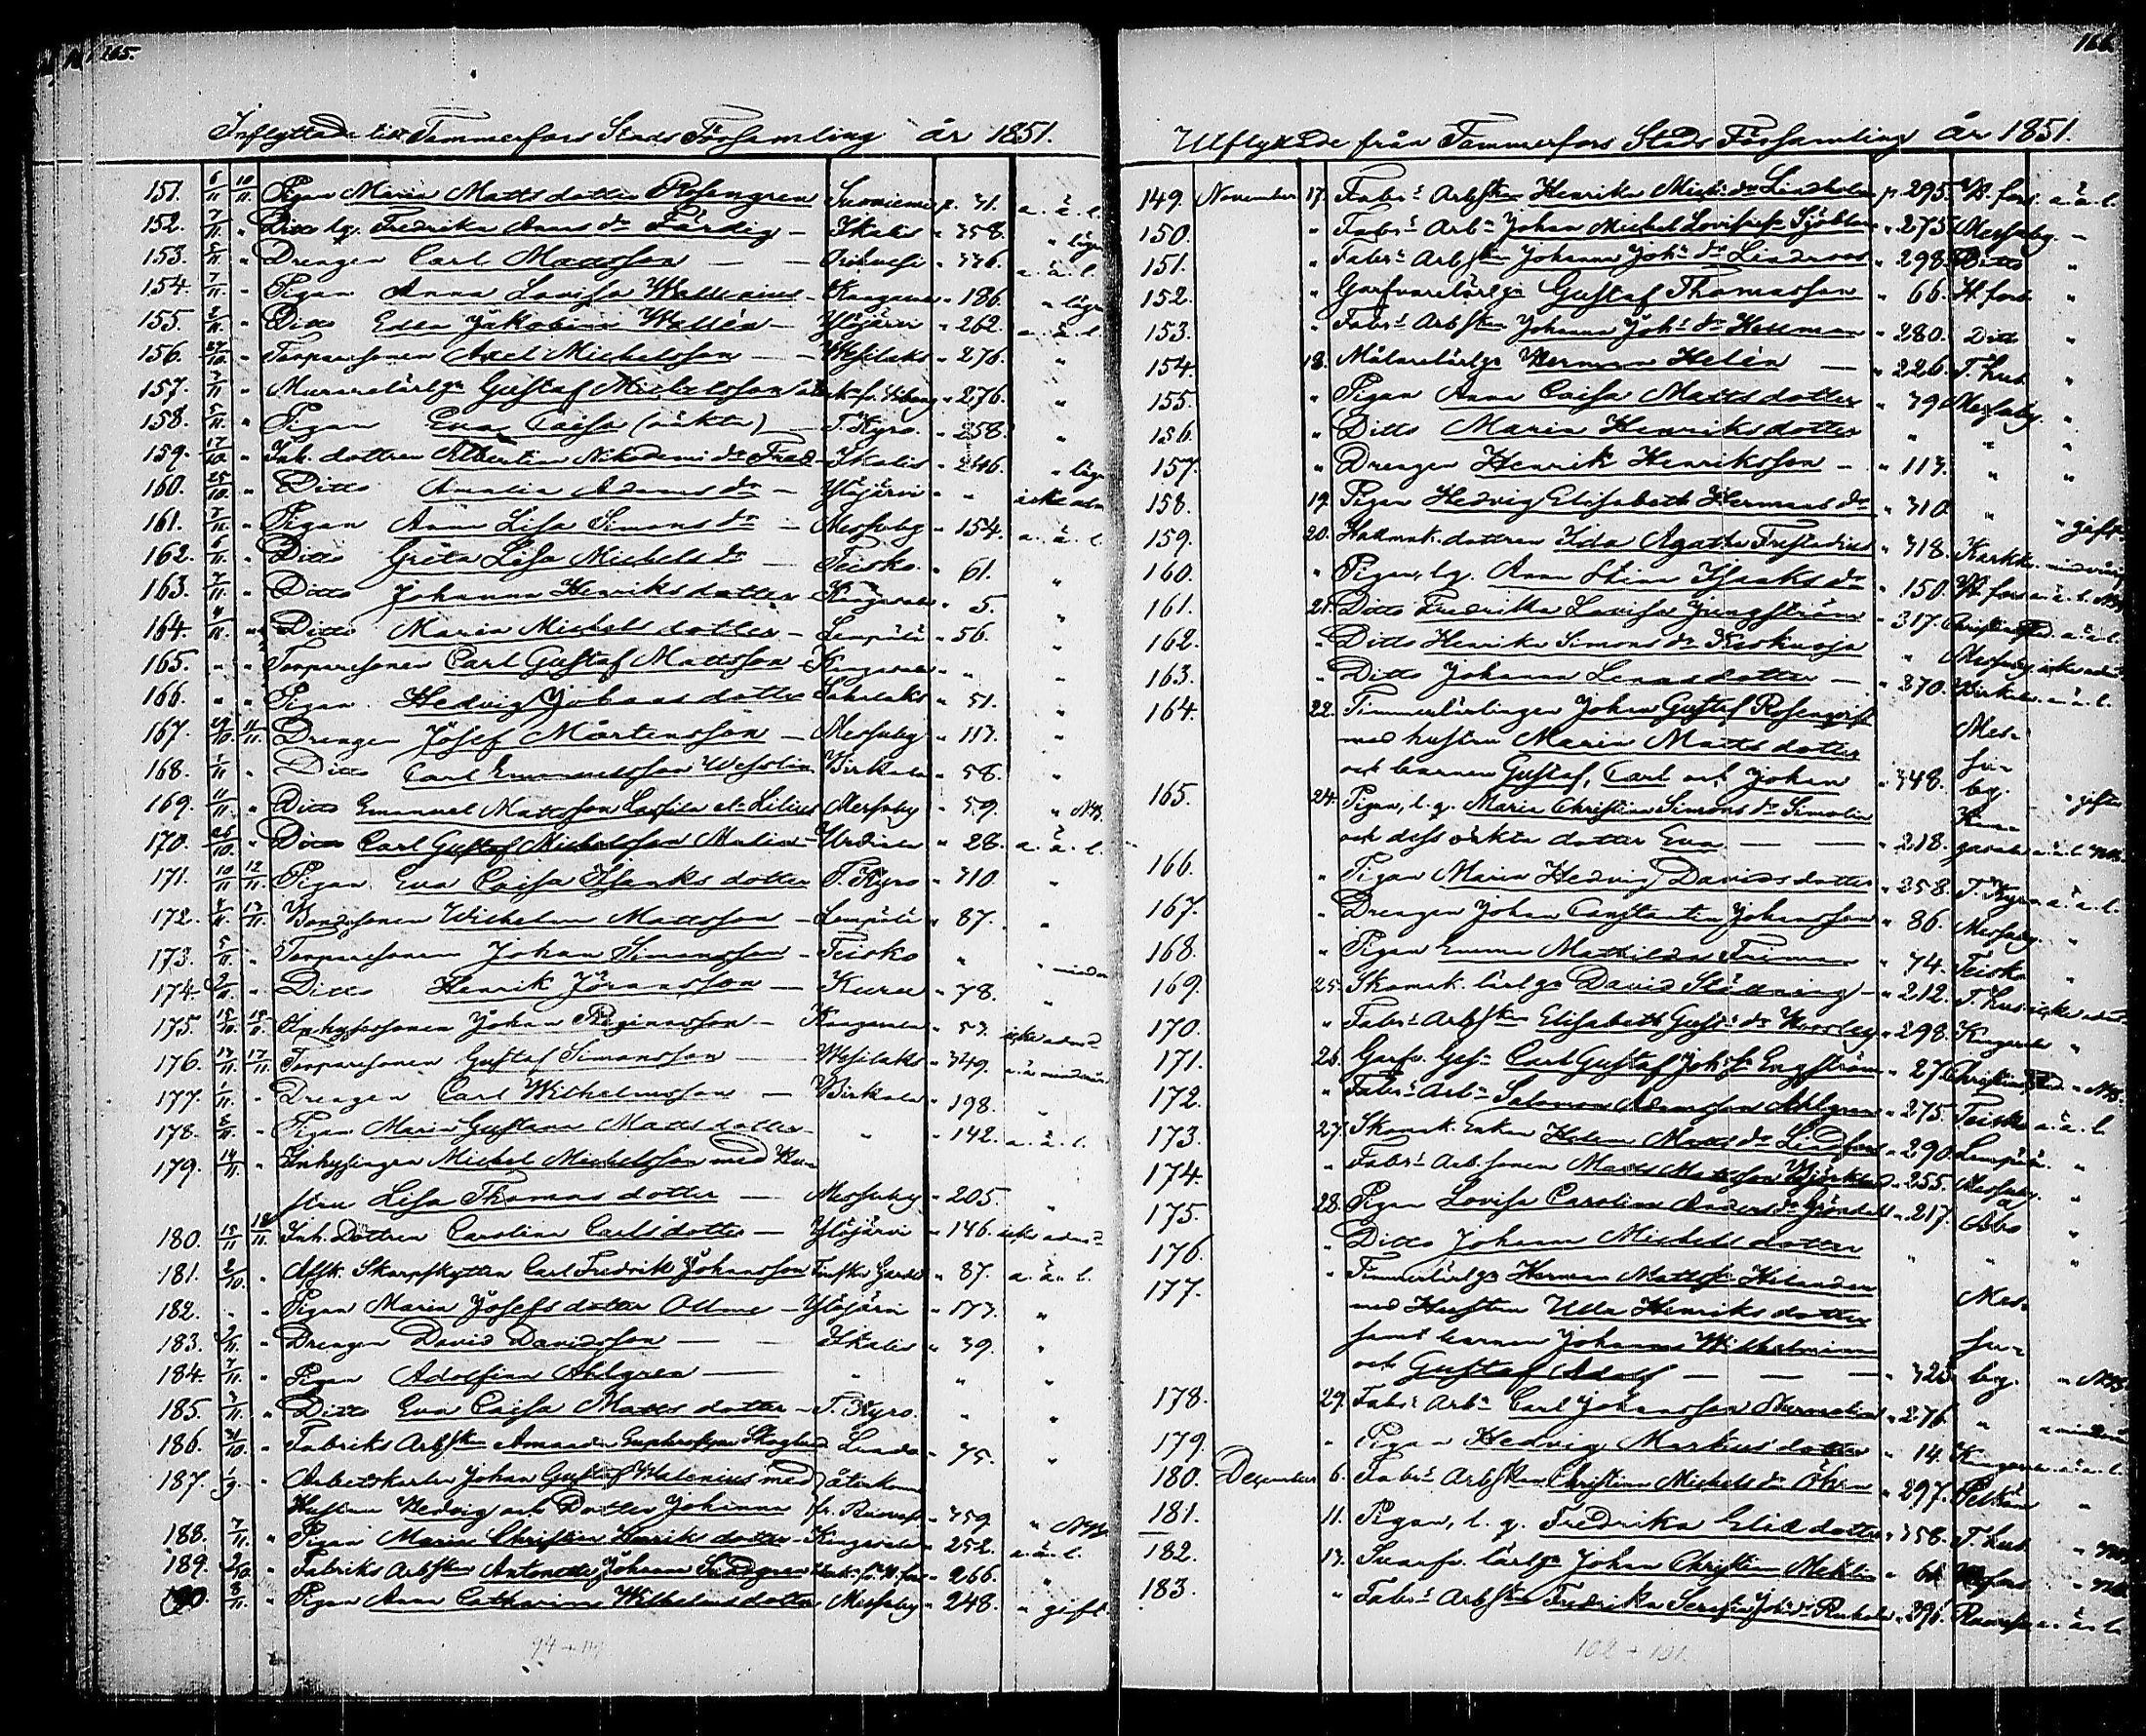 165.
Inflyttade till Tammerfors Stads Församling år 1851.
151. 6/11 10/11. Pigan Maria Matts dotter Rosengren Suoniemi p. 31. a. ä. l.
152. 7/11. " Ditto lg. Fredrika Anns dr Färdig - Ikalis " 358. " lägn
153. 5/11 " Drengen Carl Mattsson — Orihvesi " 336. a. ä. l.
154. 7/11. " Pigan Anna Lovisa Wallenius - Kangasala " 186. " lägn
155. 2/11. " Ditto Edla Jakobina Wallén - Ylöjärvi " 262. a. ä. l.
156. 27/10. " Torparesonen Axel Michelsson — Wesilaks " 276. "
157. 7/11 " Murarelärlgn Gustaf Michelsson " 276. "
158. 5/11. " Pigan Eva Caisa (oäkta) - T. Kyro. " 258. "
159. 17/10. " Inh. dottren Albertina Nikodemi dr - Ikalis " 246. " lägn
160. 25/10. " Ditto Amalia Adams dr - Ylöjärvi " " icke adm
161. 7/11. " Pigan Anna Lisa Simons dr - Messuby " 154. a. ä. l.
162. 6/11. " Ditto Greta Lisa Michels dr — Teisko. " 61. "
163. 7/11. " Ditto Johanna Henriks dotter Kangasala " 5. "
164. 4/11. " Ditto Maria Michels dotter - Lempälä " 56. "
165. " " Torparesonen Carl Gustaf Mattsson - Kangasala " " "
166. " " Pigan Hedvig Johans dotter Sahalaks " 51. "
167. 29/10. 11/11. Drengen Josef Mårtensson - Messuby " 113. "
168. 1/11 " Ditto Carl Emanuelsson Wesslin Birkala " 58. "
169. 11/11. " Ditto Emanuel Mattsson Lassila el. Lilius Messuby " 59. " NB.
170. 26/10. " Ditto Carl Gustaf Michelsson Malin - Urdiala " 28. a. ä. l.
171. 10/11 12/11. Pigan Eva Caisa Isaaks dotter T. Kyro " 310. "
172. 4/11. 13/11. Bondesonen Wilhelm Mattsson - Lempälä " 87. "
173. 5/11. " Torparesonen Johan Simonsson - Teisko " " minder
174. 2/11. " Ditto Henrik Jöransson - Kuru " 78. "
175. 15/10. 15/11. Inhysessonen Johan Reginasson - Kangasala " 53. icke admd
176. 13/11. 17/11. Torparesonen Gustaf Simonsson — Wesilaks " 349. a. ä. minderår
177. 1/11. " Drengen Carl Wilhelmsson — Birkala " 198. "
178. 8/11. " Pigan Maria Gustava Matts dotter - " " 142. a. ä. l.
179. 14/11. " Inhysingen Michel Michelsson med Hu-
stru Lisa Thomas dotter — Messuby " 205. "
180. 15/11 18/11. Inh. Dottren Carolina Carls dotter - Ylöjärvi " 146. icke admd
181. 2/10. " Afsk. Skarpskytten Carl Fredrik Johansson Finska Gardet " 87. a. ä. l.
182. " " Pigan Maria Josefs dotter Ollme - Ylöjärvi " 173. "
183. 2/11. " Drengen David Davidsson — Ikalis " 39. "
184. 7/11. " Pigan Adolfina Ahlgren — " " "
185. 3/11. " Ditto Eva Caisa Matts dotter - T. Kyro. " "
186. 31/10. " Fabriks Arbskan Amanda Euphrosyne Skoglund Lunda " 75. "
187. 1/9. " Arbetskarlen Johan Gustaf Walenius med återkom
Hustrun Hedvig och Dotter Johanna fr. Ruovesi " 359. " NB.
188. 7/11. " Pigan Maria Christina Henriks dotter - Kangasala " 252. a. ä. l.
189. 2/10. " Fabriks Arbskan Antonetta Johanna Sundgren " 266. "
190. 8/11. " Pigan Anna Catharina Wilhelms dotter Messuby " 248. " gift
166.
Utflyttade från Tammerfors Stads Församling år 1851.
149. November 17. Fabrs Arbskan Henrika Mich. dr Lindholm p. 295. H. fors. a. ä. l.
150. " Fabrs Arbn Johan Michel Lovisasn Sjöblom " 275 Messuby. -
151. " Fabrs Arbskan Johanna Johs dr Lindroos " 298. Ditto "
152. " Garfvarelärlgn Gustaf Thomasson " 66. H. fors "
153. " Fabrs Arbskan Johanna Johs dr Hellman " 280. Ditto "
154. 18. Målarelärlgn Herman Helén — " 226. T. hus "
155. " Pigan Anna Caisa Matts dotter " 39 Messuby. "
156. " Ditto Maria Henriks dotter " " "
157. " Drengen Henrik Henriksson - " 113. " "
158. 19. Pigan Hedvig Elisabeth Hermans dr " 310. " " gift
159. 20. Hattmak. dottren Ida Agatha Frestadius " 318. Karkku minderårig
160. " Pigan, lg. Anna Stina Isaks dr " 150. H. fors a. ä. l. NB.
161. 21. Ditto Fredrika Lovisa Ljungström " 317. Christinestad. a. ä. l.
162. " Ditto Henrika Simons dr Keskusja " Messuby icke admd
163. " Ditto Johanna Lenas dotter — " 270. Birkala a. ä. l.
164. 22. Timmerlärlingen Johan Gustaf Rosenqvist
med hustru Maria Matts dotter Mes-
och barnen Gustaf, Carl och Johan " 348. su-by. " gifta
165. 24. Pigan, l. g. Maria Christina Simons dr Simolin Kan-
och dess oäkta dotter Eva — " 218. gasala a. ä. l. NB.
166. " Pigan Maria Hedvig Davids dotter " 258. T. Kyro a. ä. l.
167. " Drengen Johan Constantin Johansson " 86. Messuby. "
168. " Pigan Emma Mathilda Friman " 74. Teisko "
169. 25. Skomak. lärlgn David Ställning - " 212. T. hus icke admd
170. " Fabrs Arbskan Elisabeth Gusts dr " 298. Kangasala "
171. 26. Garfv. Gesn Carl Gustaf Johsn Engström " 27. Christinestad " NB.
172. " Fabrs Arbn Salomon Adamsson Ahlgren " 275. Teisko a. ä. l.
173. 27. Skomak. Enkan Helena Matts dr Lindfors " 290. Lempälä. "
174. " Fabrs Arb. sonen Matts Mattsson Björklund " 255. Messuby. "
175. 28. Pigan Lovisa Carolina Anders dr Gröndahl " 217. Åbo "
176. " Ditto Johanna Michels dotter " " "
177. " Timmerlärlgn Herman Mattssn Hilander
med Hustrun Ulla Henriks dotter Mes-
samt barnen Johanna Wilhelmina su-
och Gustaf Adolf — — — " 323. by. " NB.
178. 29. Fabrs Arbn Carl Johansson Nermelin " 276. " " minderår
179. " Pigan Hedvig Markus dotter " 14. Kangasala a. ä. l.
180. December 6. Fabrs Arbskan Christina Michels dr Öhrn " 297. Pelkäne "
181. 11. Pigan, l. g. Fredrika Elias dotter " 358. T. hus " NB.
182. 13. Svarfv. lärlgn Johan Christian Mehlin " 66 H. fors " NB.
183. " Fabrs Arbskan Fredrika Serafia Johs dr Ruhala " 296. Ruovesi a. ä. l.
102 + 101.